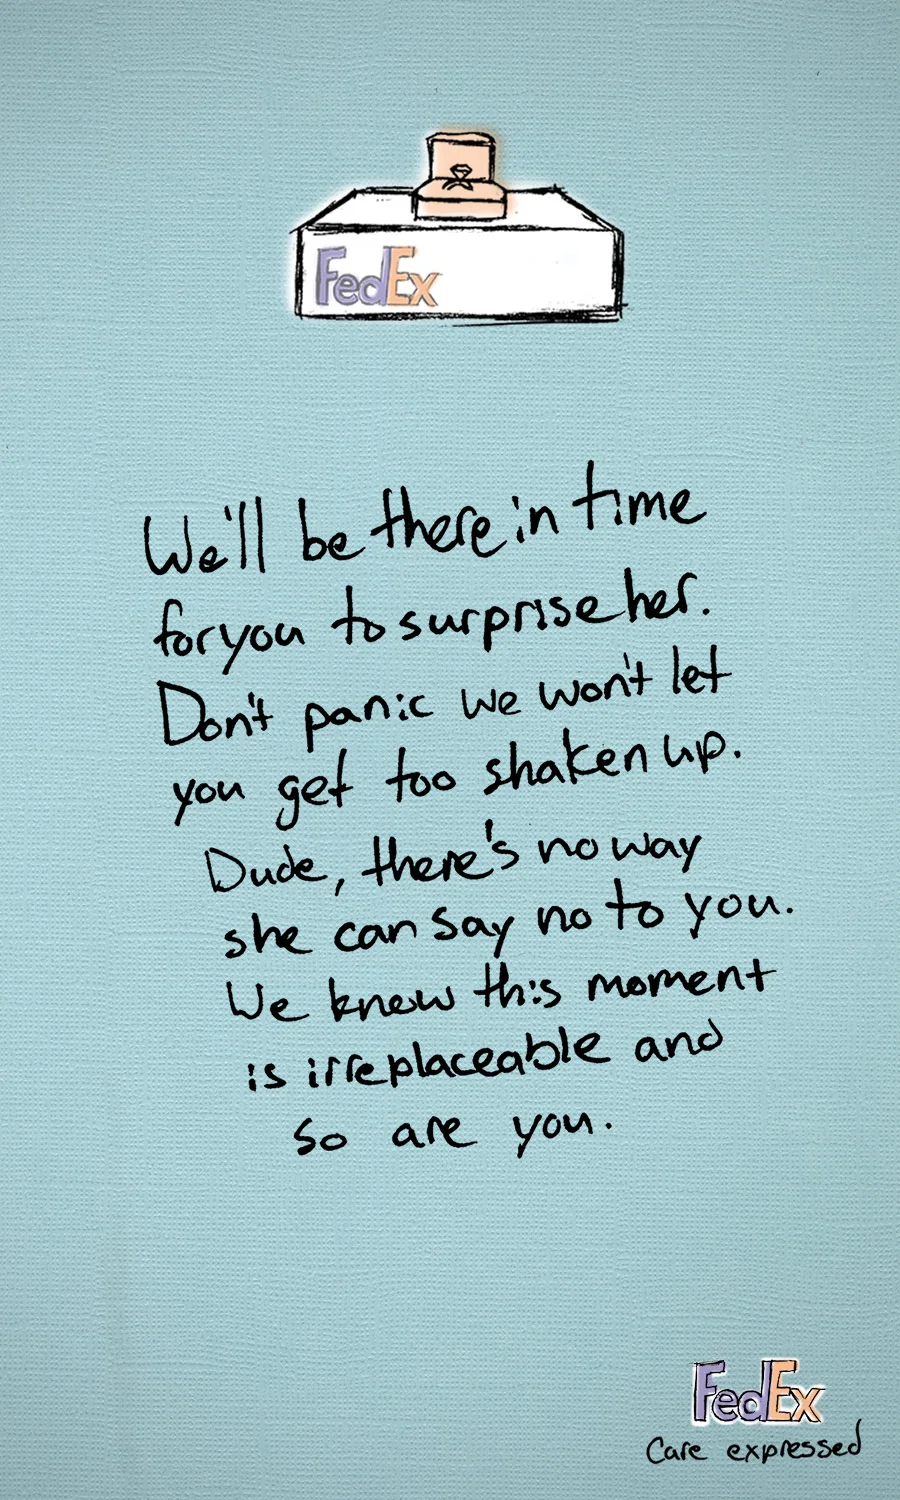 FedEx
We'll be there in time
for you to surprise her.
Don't panic we won't let
you get too shaken up.
Dude, there's no way
she can say no to you.
We know this moment
is irreplaceable and
so are you.
FedEx
Care expressed